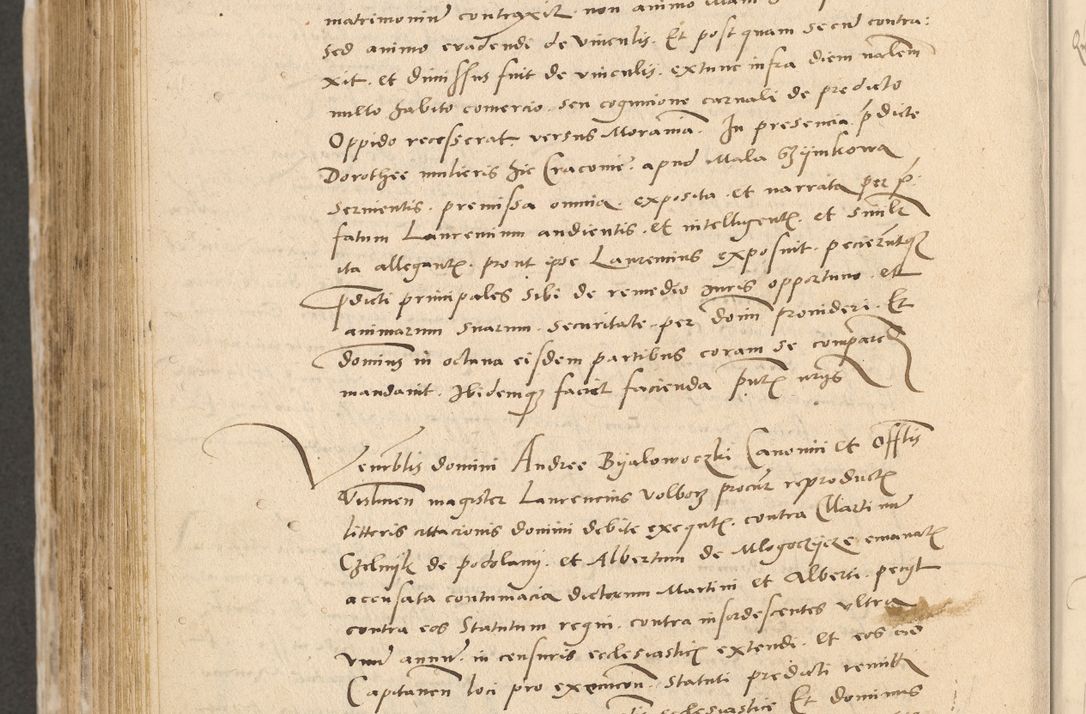 matrimoniu contraxit. non animo
sed animo evadendi de vinculis. Et post quam secu contra:
xit. et dimissus fuit de vinculis. extunc infra diem nalem
nullo habito comercio. seu cognicione carnali de predicto
Oppido recesserat. versus Moraviã. In presencia pdicte
Dorothee mulieris hic Cracovie. apud Mala
servientis. premissa omnia. exposita. et narrata per p:
fatum Laurencium audientis. et intelligent. et similr
ita allegant. prout ipse Laurencius exposuit. pecierutq
pdicti principales sibi de remedio iuris opportuno. et
animarum suarum. securitate. per domi provideri. Et
dominus in octava eisdem partibus coram se comparere
mandavit. Ibidemq faciet facienda pntt
Venerblis domini Andree Byalowoczki Canonici et Offlis
Visliciien magister Laurencius Volborz procur reproductt
litteris citacionis domini debite exequt. contra Martinu
Czelnijk de podolany. et Albertum de Mlogoczijcze emanatt
accusata contumacia dictorum Martini et Alberti. pecijt
contra eos Statutum regni. contra insordescentes ultra
unu annu. in censuris ecclesiastic extendi. et eos ad
Capitaneu loci pro execucion. Statuti predicti remitti
ecclesiastice Et dominus